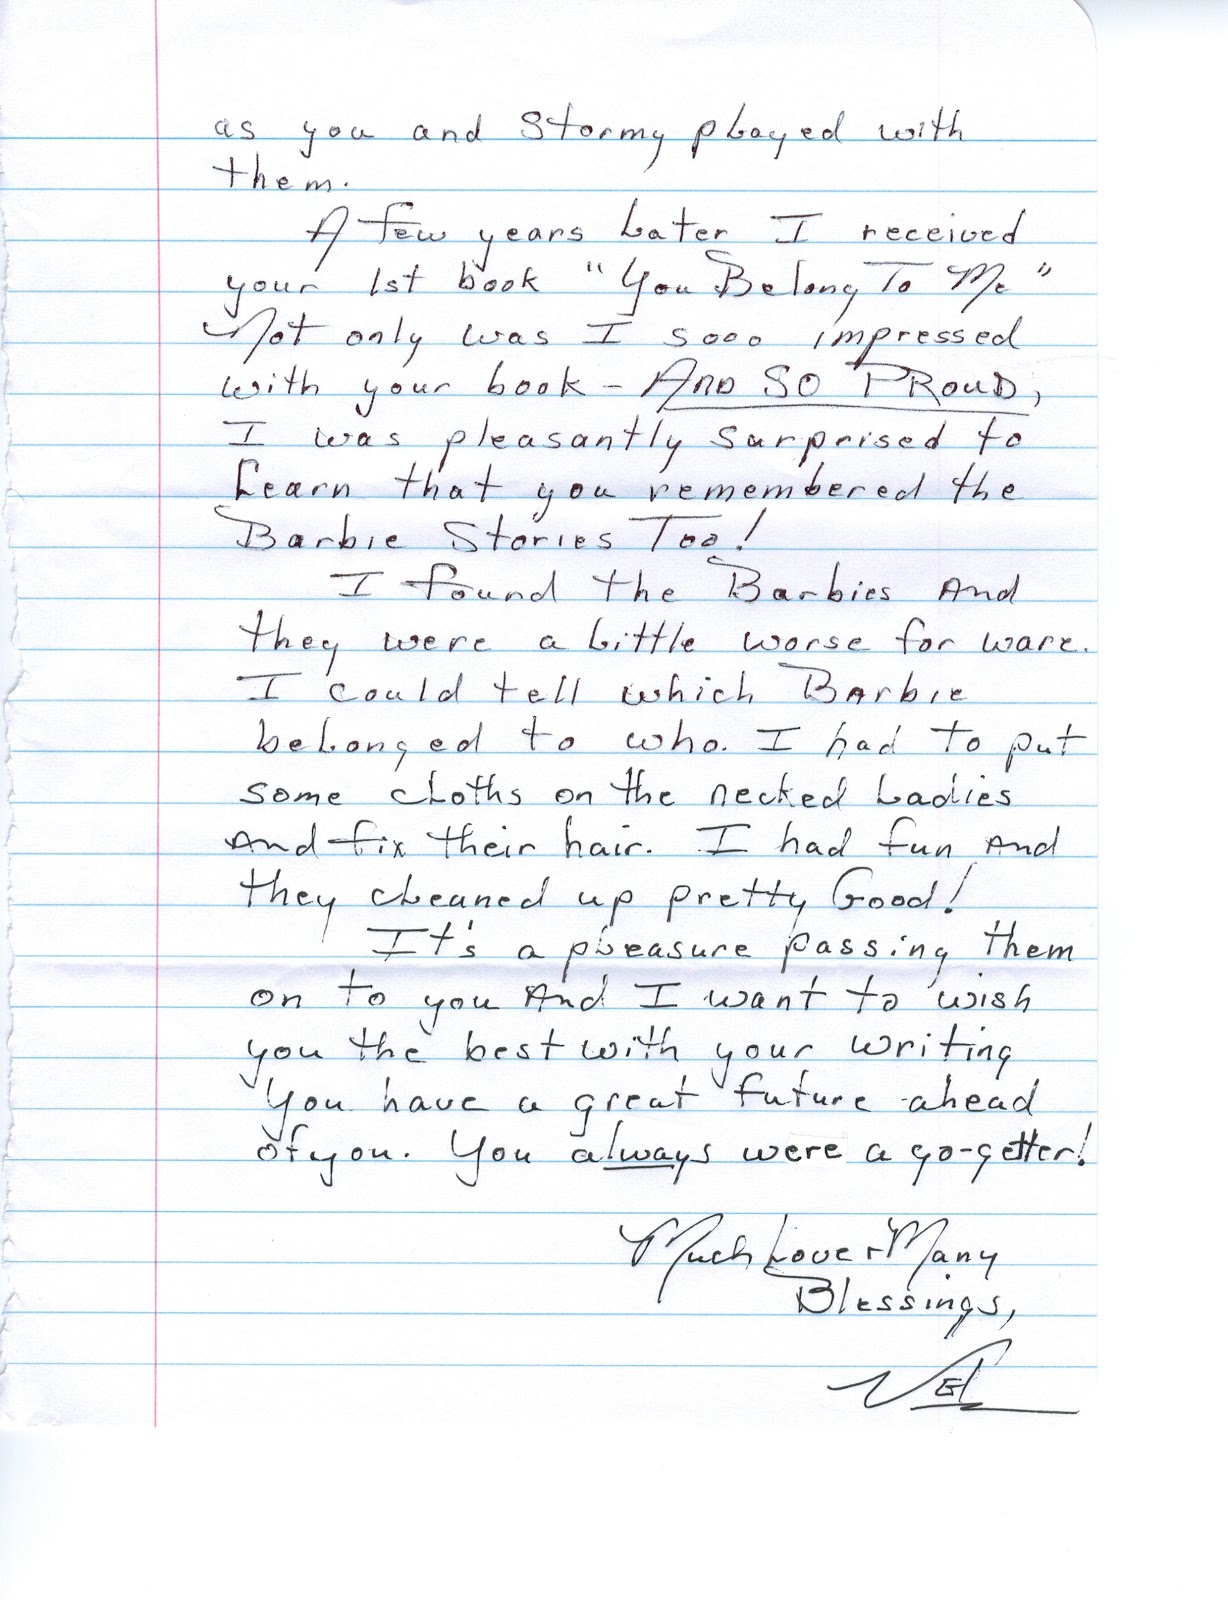 as you and Stormy played with
them.
A few years Later I received
your 1st book "You Belong To Me"
Not only was I sooo impressed
with your book - AND SO PROUD,
I was pleasantly surprised to
Learn that you remembered the
Barbie Stories Too!
I found the Barbies And
they were a Little worse for ware.
I could tell which Barbie
beLonged to who. I had to put
some cLoths on the necked Ladies
And fix their hair. I had fun And
they cLeaned up pretty Good!
It's a pLeasure passing them
on to you And I want to wish
you the best with your writing
You have a great future ahead
of you. You always were a go-getter!
Much Love + Many
Blessings,
Vel